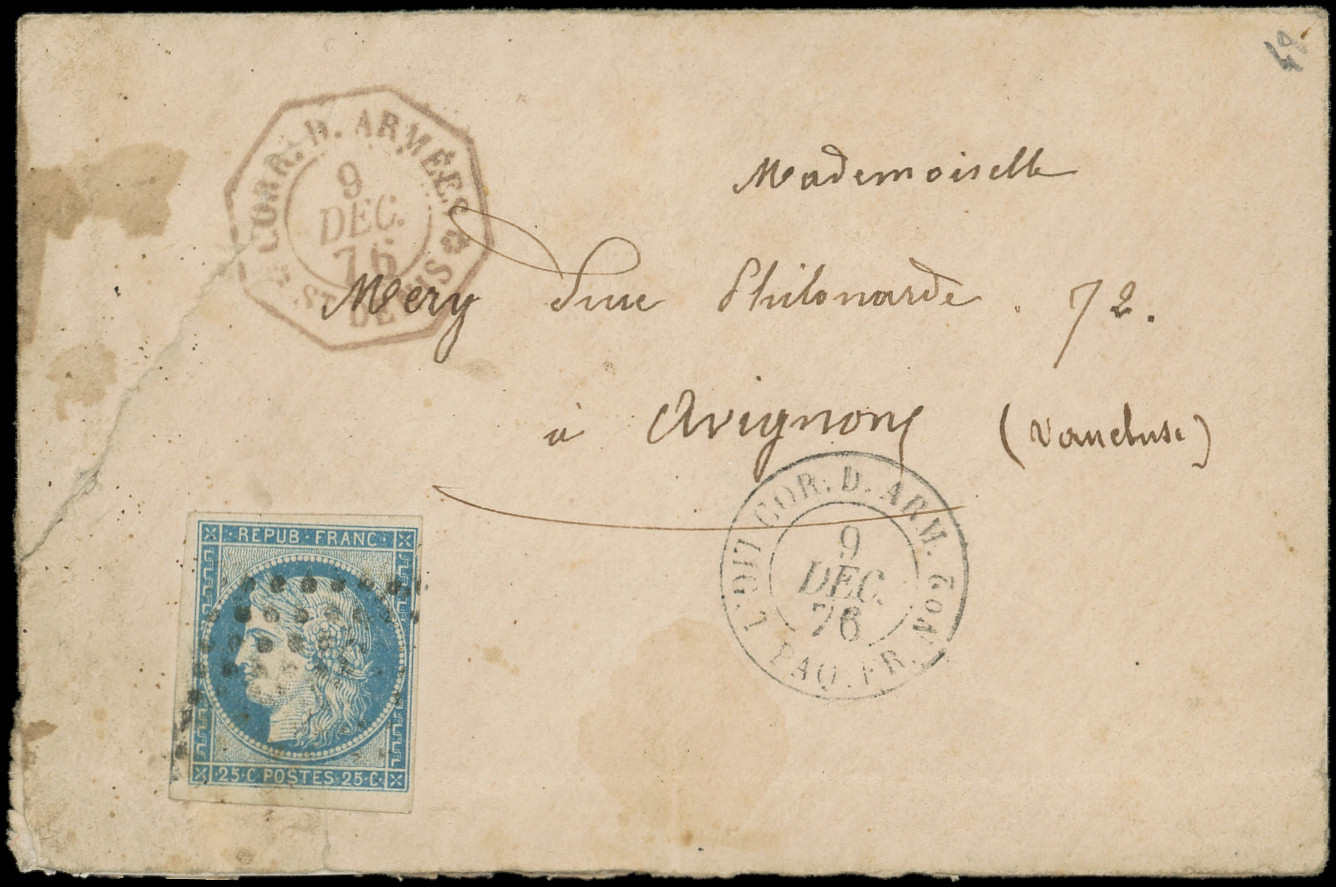 48
CORR. D. ARMÉES
9
DEC.
76
ST DENIS
Mademoiselle
Mery Rue Philonarde . 72.
à Avignon (Vaucluse)
COR. D. ARM.
LIG.
PAQ. FR. No2
9
DEC.
76
REPUB·FRANC·
25·C POSTES 25·C·